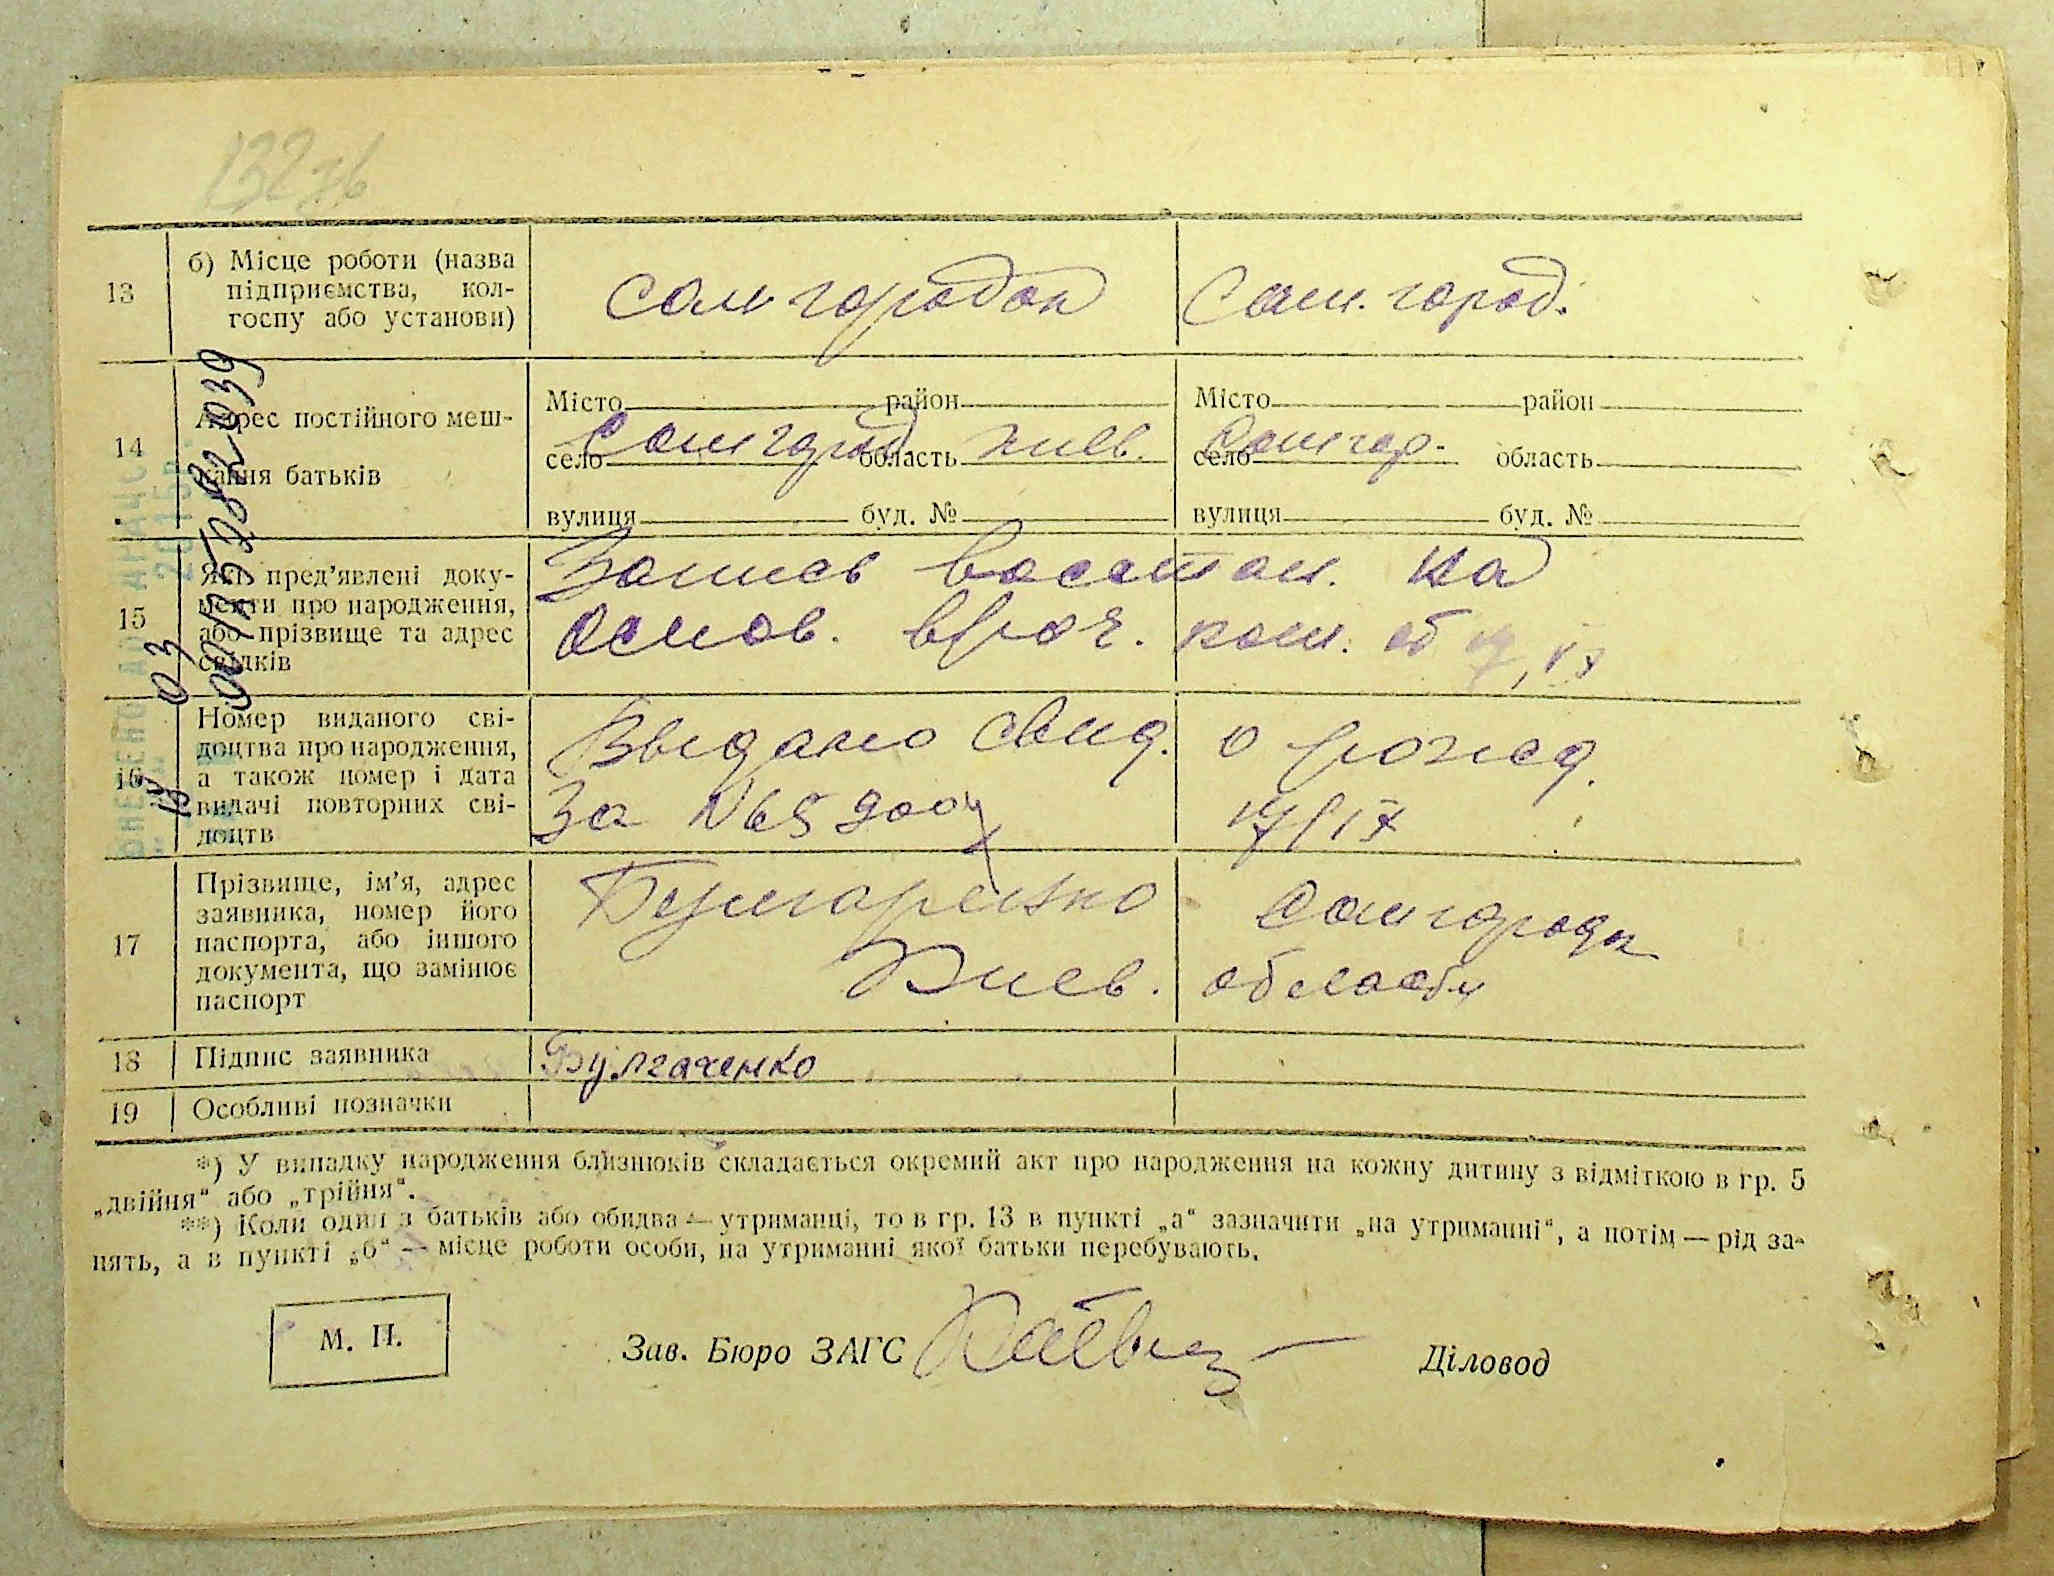 132зв
13
б) Місце роботи (назва
підприємства, кол-
госпу або установи)
Самгородок
Самгород.
14
Адрес постійного меш-
кання батьків
Місто район
село Самгород область Киев.
вулиця буд. №
Місто район
село Самгор. область
вулиця буд. №
15
Які пред'явлені доку-
менти про народження,
або прізвище та адрес
свідків
Запись восстан. на
основ. врач. ком. от 17/IX
16
Номер виданого сві-
доцтва про народження,
а також номер і дата
видачі повторних сві-
доцтв
Выдано свид. о рожд.
за №
17/IX
17
Прізвище, ім'я, адрес
заявника, номер його
паспорта, або іншого
документа, що замінює
паспорт
Самгородк
Киев. области
18
Підпис заявника
Булгаченко
19
Особливі позначки
*) У випадку народження близнюків складається окремий акт про народження на кожну дитину з відміткою в гр. 5
„двійня“ або „трійня“.
**) Коли один з батьків або обидва — утриманці, то в гр. 13 в пункті „а“ зазначити „на утриманні“, а потім — рід за-
нять, а в пункті „б“ — місце роботи особи, на утриманні якої батьки перебувають.
М. П.
Зав. Бюро ЗАГС
Діловод